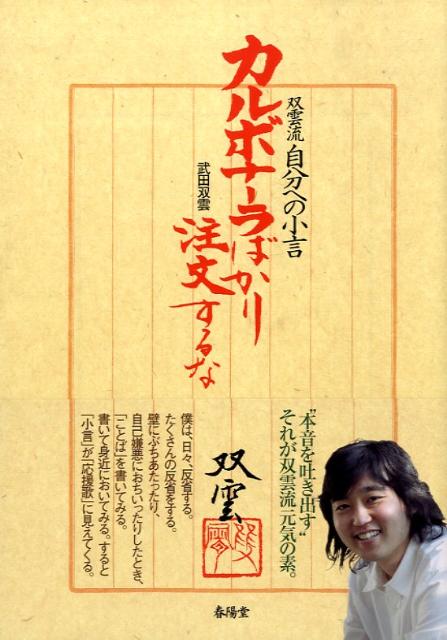 双雲流 自分への小言
カルボナーラばかり
注文するな
武田双雲
“本音を吐き出す”
それが双雲流元気の素。
双雲
僕は、日々、反省する。
たくさんの反省をする。
壁にぶちあたったり、
自己嫌悪におちいったりしたとき、
「ことば」を書いてみる。
書いて身近においてみる。すると
「小言」が「応援歌」に見えてくる。
春陽堂